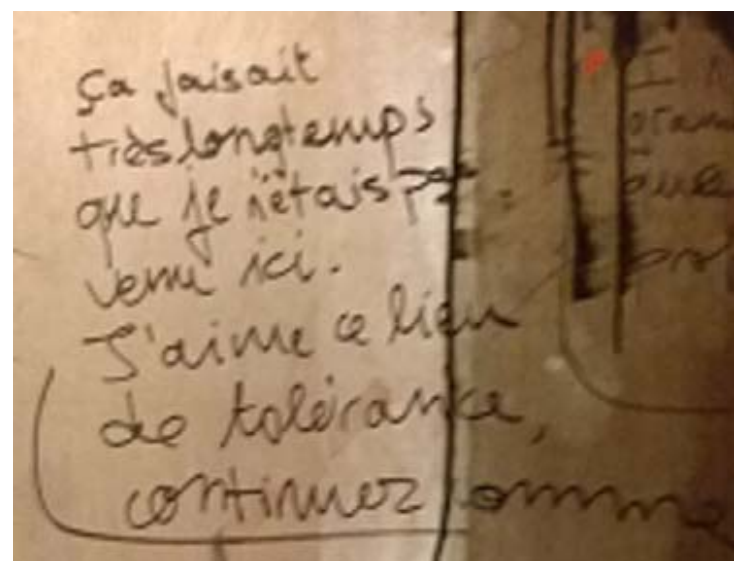 ça faisait
très longtemps
que je n'étais pas
venu ici.
J'aime ce lieu
de tolérance,
continuez comme